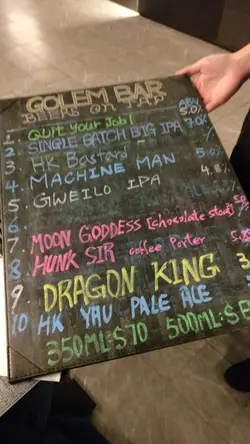 GOLEM BAR
BIERS ON TAP
ABV
1. QUIT YOUR JOB! 5.0%
2 SINGLE BATCH BIG IPA 7.0%
3 HK Bastard
4. MACHINE MAN 5.0%
5. GWEILO IPA 4.8%
6.
7. MOON GODDESS [chocolate stout]
8. HUNK SIR coffee Porter 5.8
9. DRAGON KING
10 HK YAU PALE ALE 5
350ML:$70 500ML:$